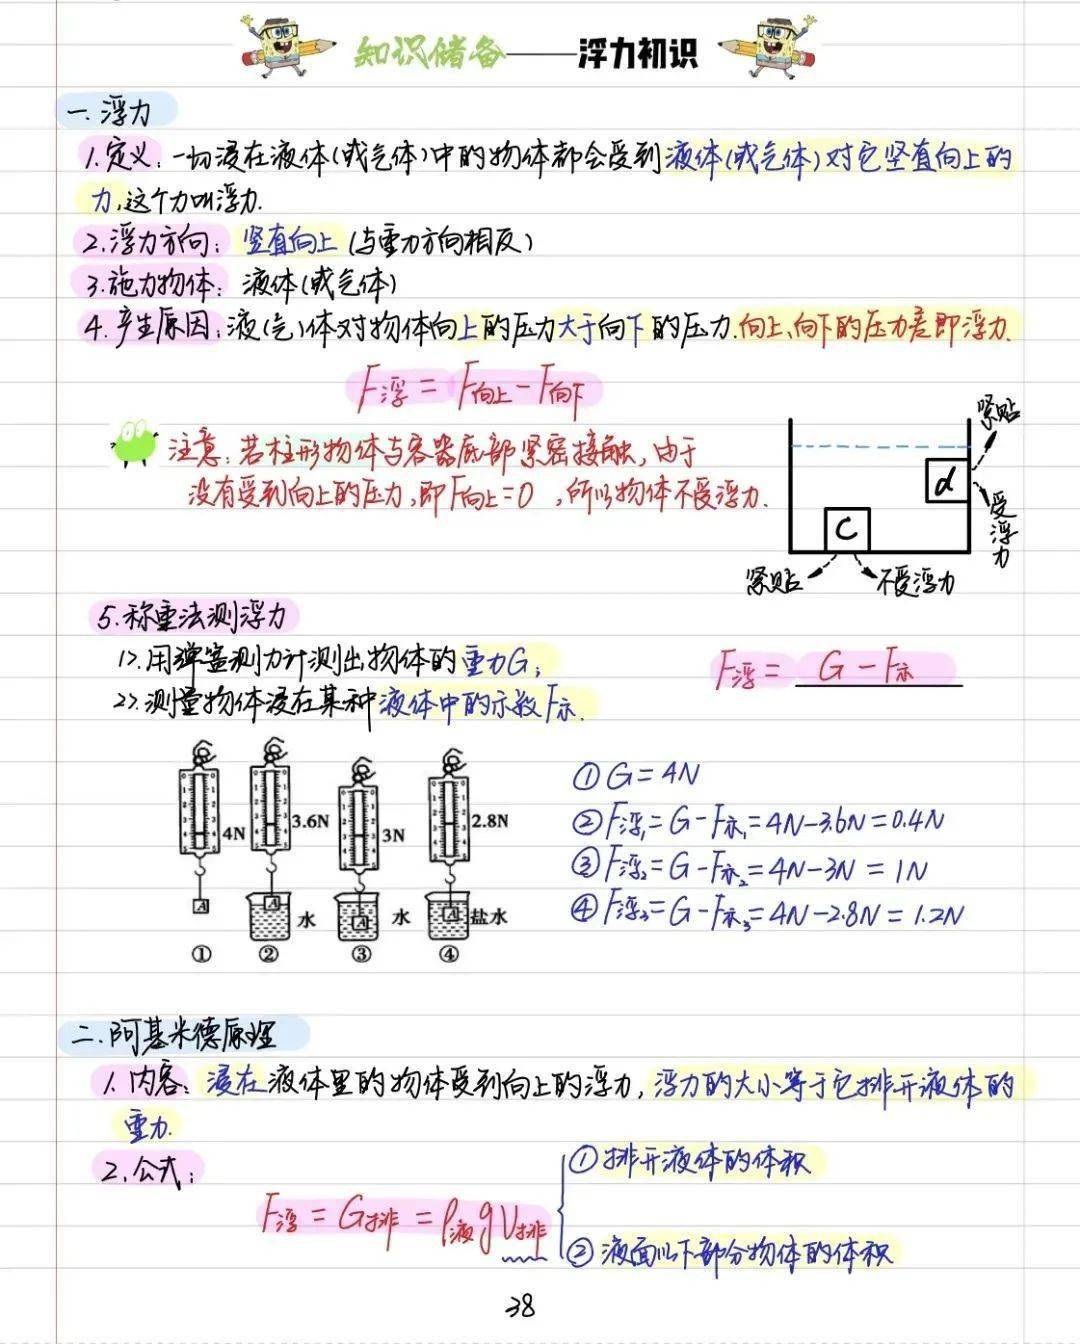 知识储备——浮力初识
一.浮力
1.定义:一切浸在液体(或气体)中的物体都会受到液体(或气体)对它竖直向上的
力,这个力叫浮力.
2.浮力方向: 竖直向上 (与重力方向相反)
3.施力物体: 液体(或气体)
4.产生原因:液(气)体对物体向上的压力大于向下的压力.向上、向下的压力差即浮力.
F浮 = F向上 - F向下
注意:若柱形物体与容器底部紧密接触,由于
没有受到向上的压力,即F向上=0,所以物体不受浮力.
紧贴
d
受浮力
C
紧贴
不受浮力
5.称重法测浮力
1>.用弹簧测力计测出物体的重力G;
2>.测量物体浸在某种液体中的示数F示.
F浮 = G - F示
4N
3.6N
3N
2.8N
A
A 水
A 水
A 盐水
① ② ③ ④
① G = 4N
② F浮₁= G - F示₁= 4N - 3.6N = 0.4N
③ F浮₂= G - F示₂= 4N - 3N = 1N
④ F浮₃= G - F示₃= 4N - 2.8N = 1.2N
二.阿基米德原理
1.内容: 浸在液体里的物体受到向上的浮力,浮力的大小等于它排开液体的
重力.
2.公式:
F浮 = G排 = ρ液gV排
① 排开液体的体积
② 液面以下部分物体的体积
38